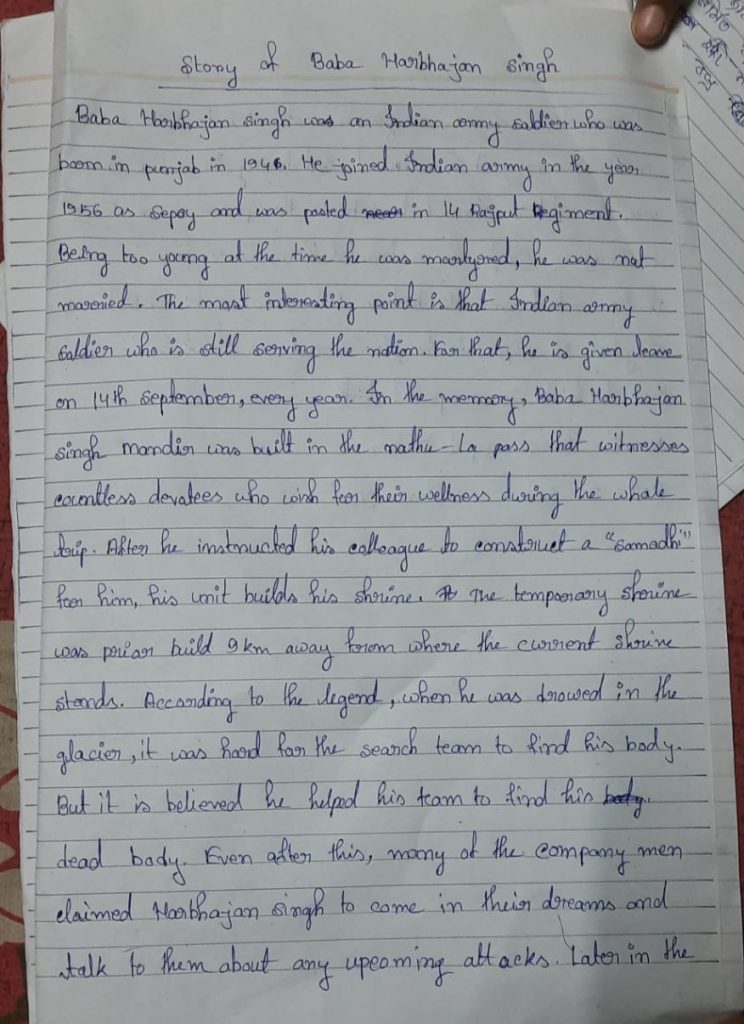 Story of Baba Harbhajan singh
Baba Harbhajan singh was an Indian army soldier who was
born in punjab in 1946. He joined Indian army in the year
1956 as Sepoy and was posted in 14 Rajput Regiment.
Being too young at the time he was martyred, he was not
married. The most interesting point is that Indian army
soldier who is still serving the nation. For that, he is given leave
on 14th September, every year. In the memory, Baba Harbhajan
singh mandir was built in the nathu-La pass that witnesses
countless devotees who wish for their wellness during the whole
trip. After he instructed his colleague to construct a "samadhi"
for him, his unit builds his shrine. The temporary shrine
was prior build 9 km away from where the current shrine
stands. According to the legend, when he was drowed in the
glacier, it was hard for the search team to find his body.
But it is believed he helped his team to find his body.
dead body. Even after this, many of the company men
claimed Harbhajan singh to come in their dreams and
talk to them about any upcoming attacks. Later in the